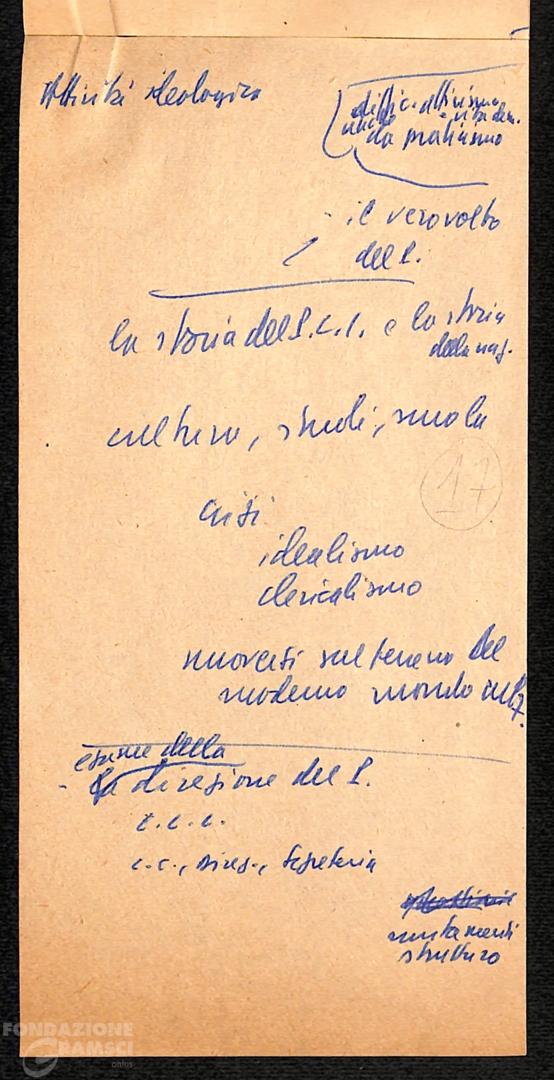 Attività ideologica
diffic. attivismo
da praticismo
- il vero volto
del P.
la storia del P.C.I. e la storia
della naz.
cultura, studi, scuola
17
crisi
idealismo
clericalismo
muoversi sul terreno del
moderno mondo cult.
esame della
- la direzione del P.
C.C.C.
C.C., Direz., Segreteria
mutamenti
struttura
FONDAZIONE
GRAMSCI
onlus